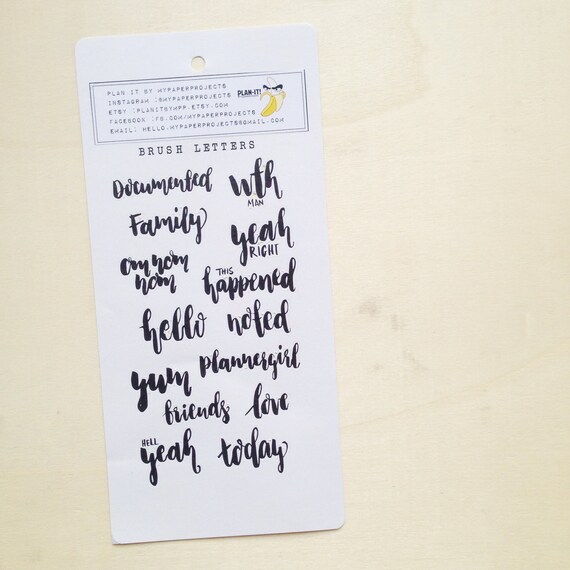 PLAN IT BY MYPAPERPROJECTS
INSTAGRAM :@MYPAPERPROJECTS
ETSY :PLANITBYMPP.ETSY.COM
FACEBOOK :FB.COM/MYPAPERPROJECTS
EMAIL: HELLO.MYPAPERPROJECTS@GMAIL.COM
PLAN-IT!
BRUSH LETTERS
Documented
wth
MAN
Family
yeah
RIGHT
om nom
nom
THIS
happened
hello
noted
yum
plannergirl
friends
love
HELL
yeah
today